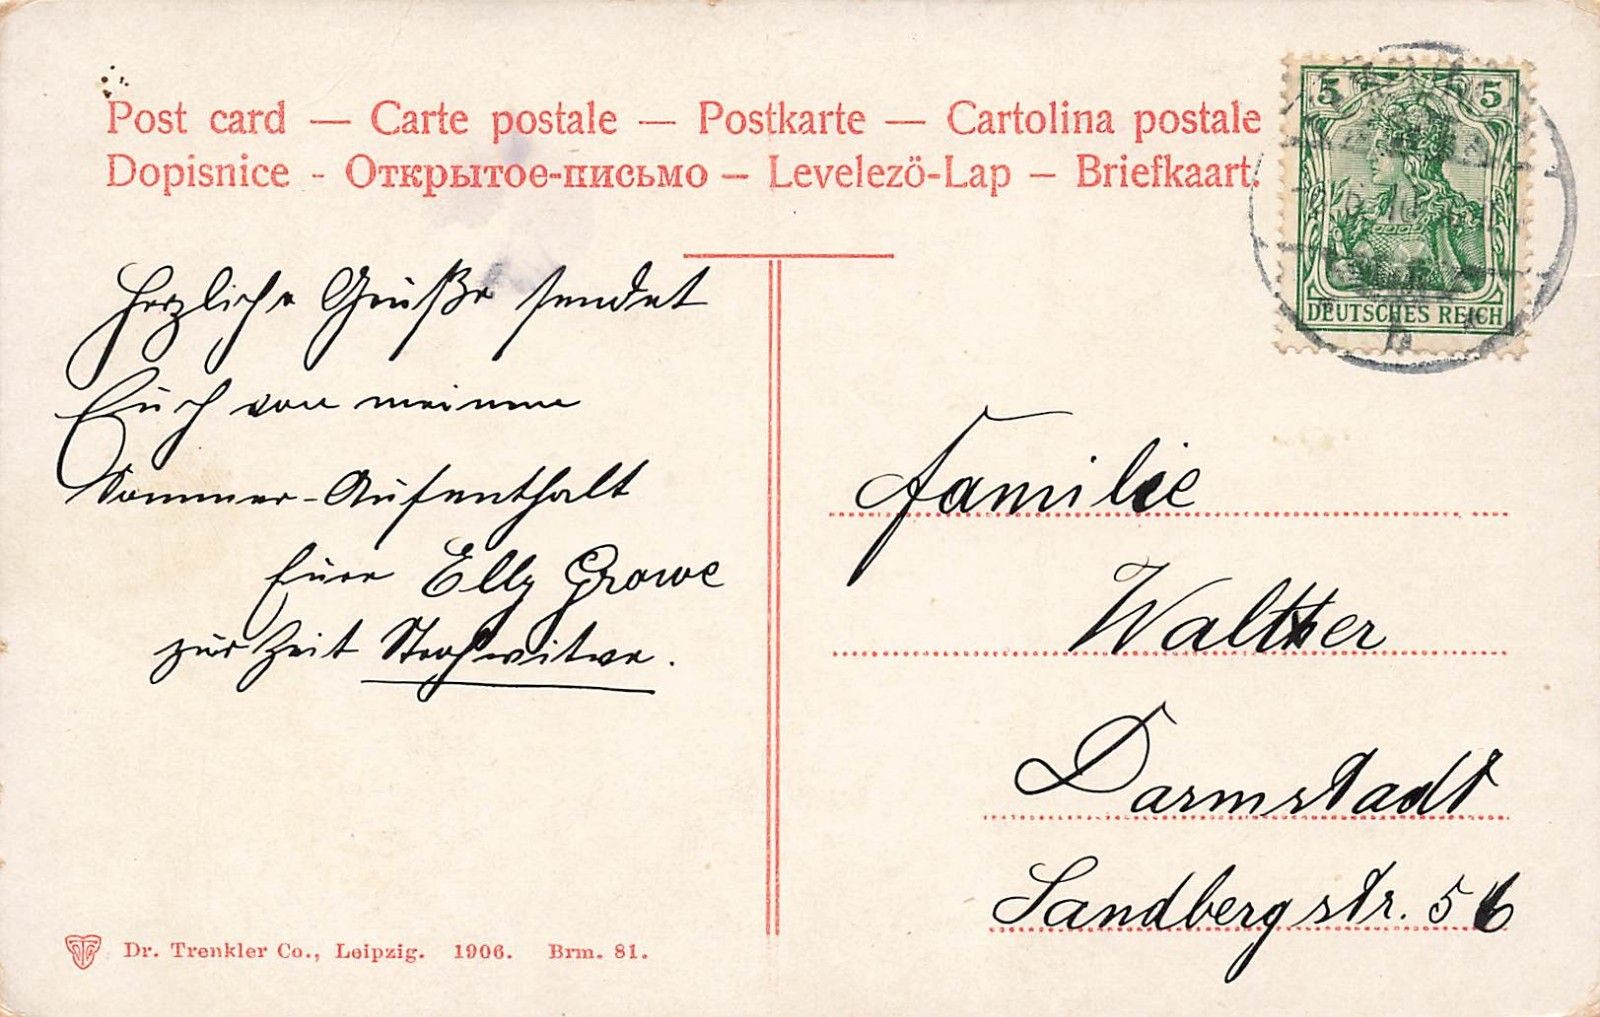 Post card — Carte postale — Postkarte — Cartolina postale
Dopisnice - Открытое-письмо – Levelezö-Lap – Briefkaart.
5 5
DEUTSCHES REICH
Herzliche Grüße sendet
Euch von meinem
Sommer-Aufenthalt
Eure Elly Growe
zur Zeit Strohwitwe.
Familie
Walther
Darmstadt
Sandbergstr. 56
Dr. Trenkler Co., Leipzig. 1906. Brm. 81.